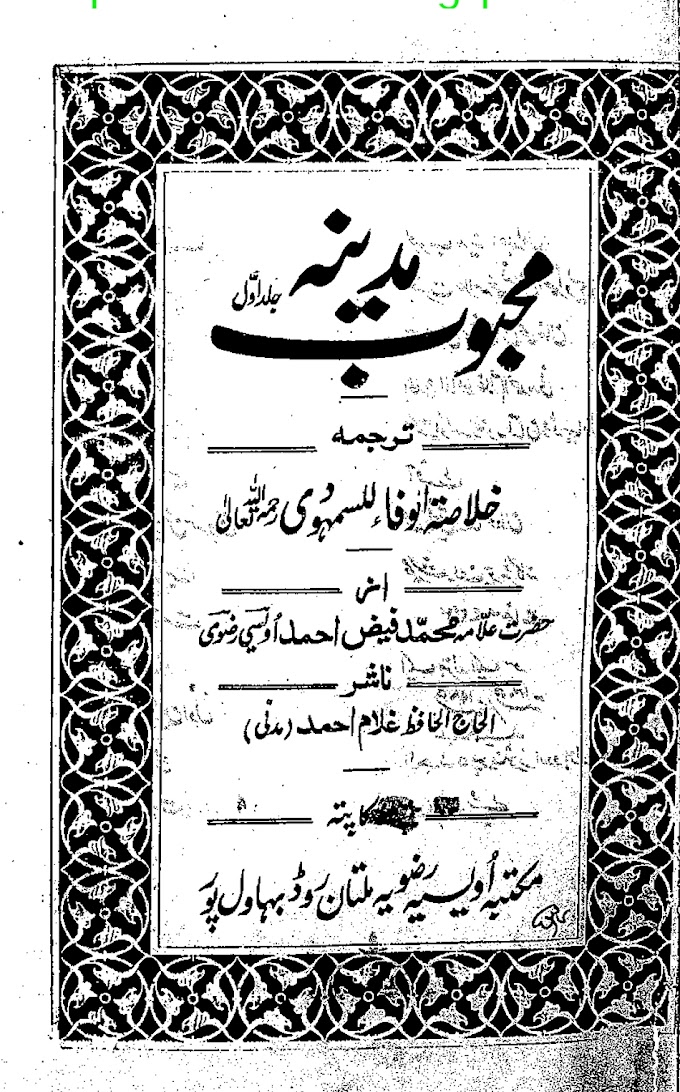 محبوب مدینہ جلد اوّل
ترجمہ
خلاصۃ الوفاء للسمہودی رحمہ اللہ تعالیٰ
از
حضرت علّامہ محمّد فیض احمد اُویسی رضوی
ناشر
الحاج الحافظ غلام احمد (مدنی)
کا پتہ
مکتبہ اُویسیہ رضویہ ملتان روڈ بہاول پور